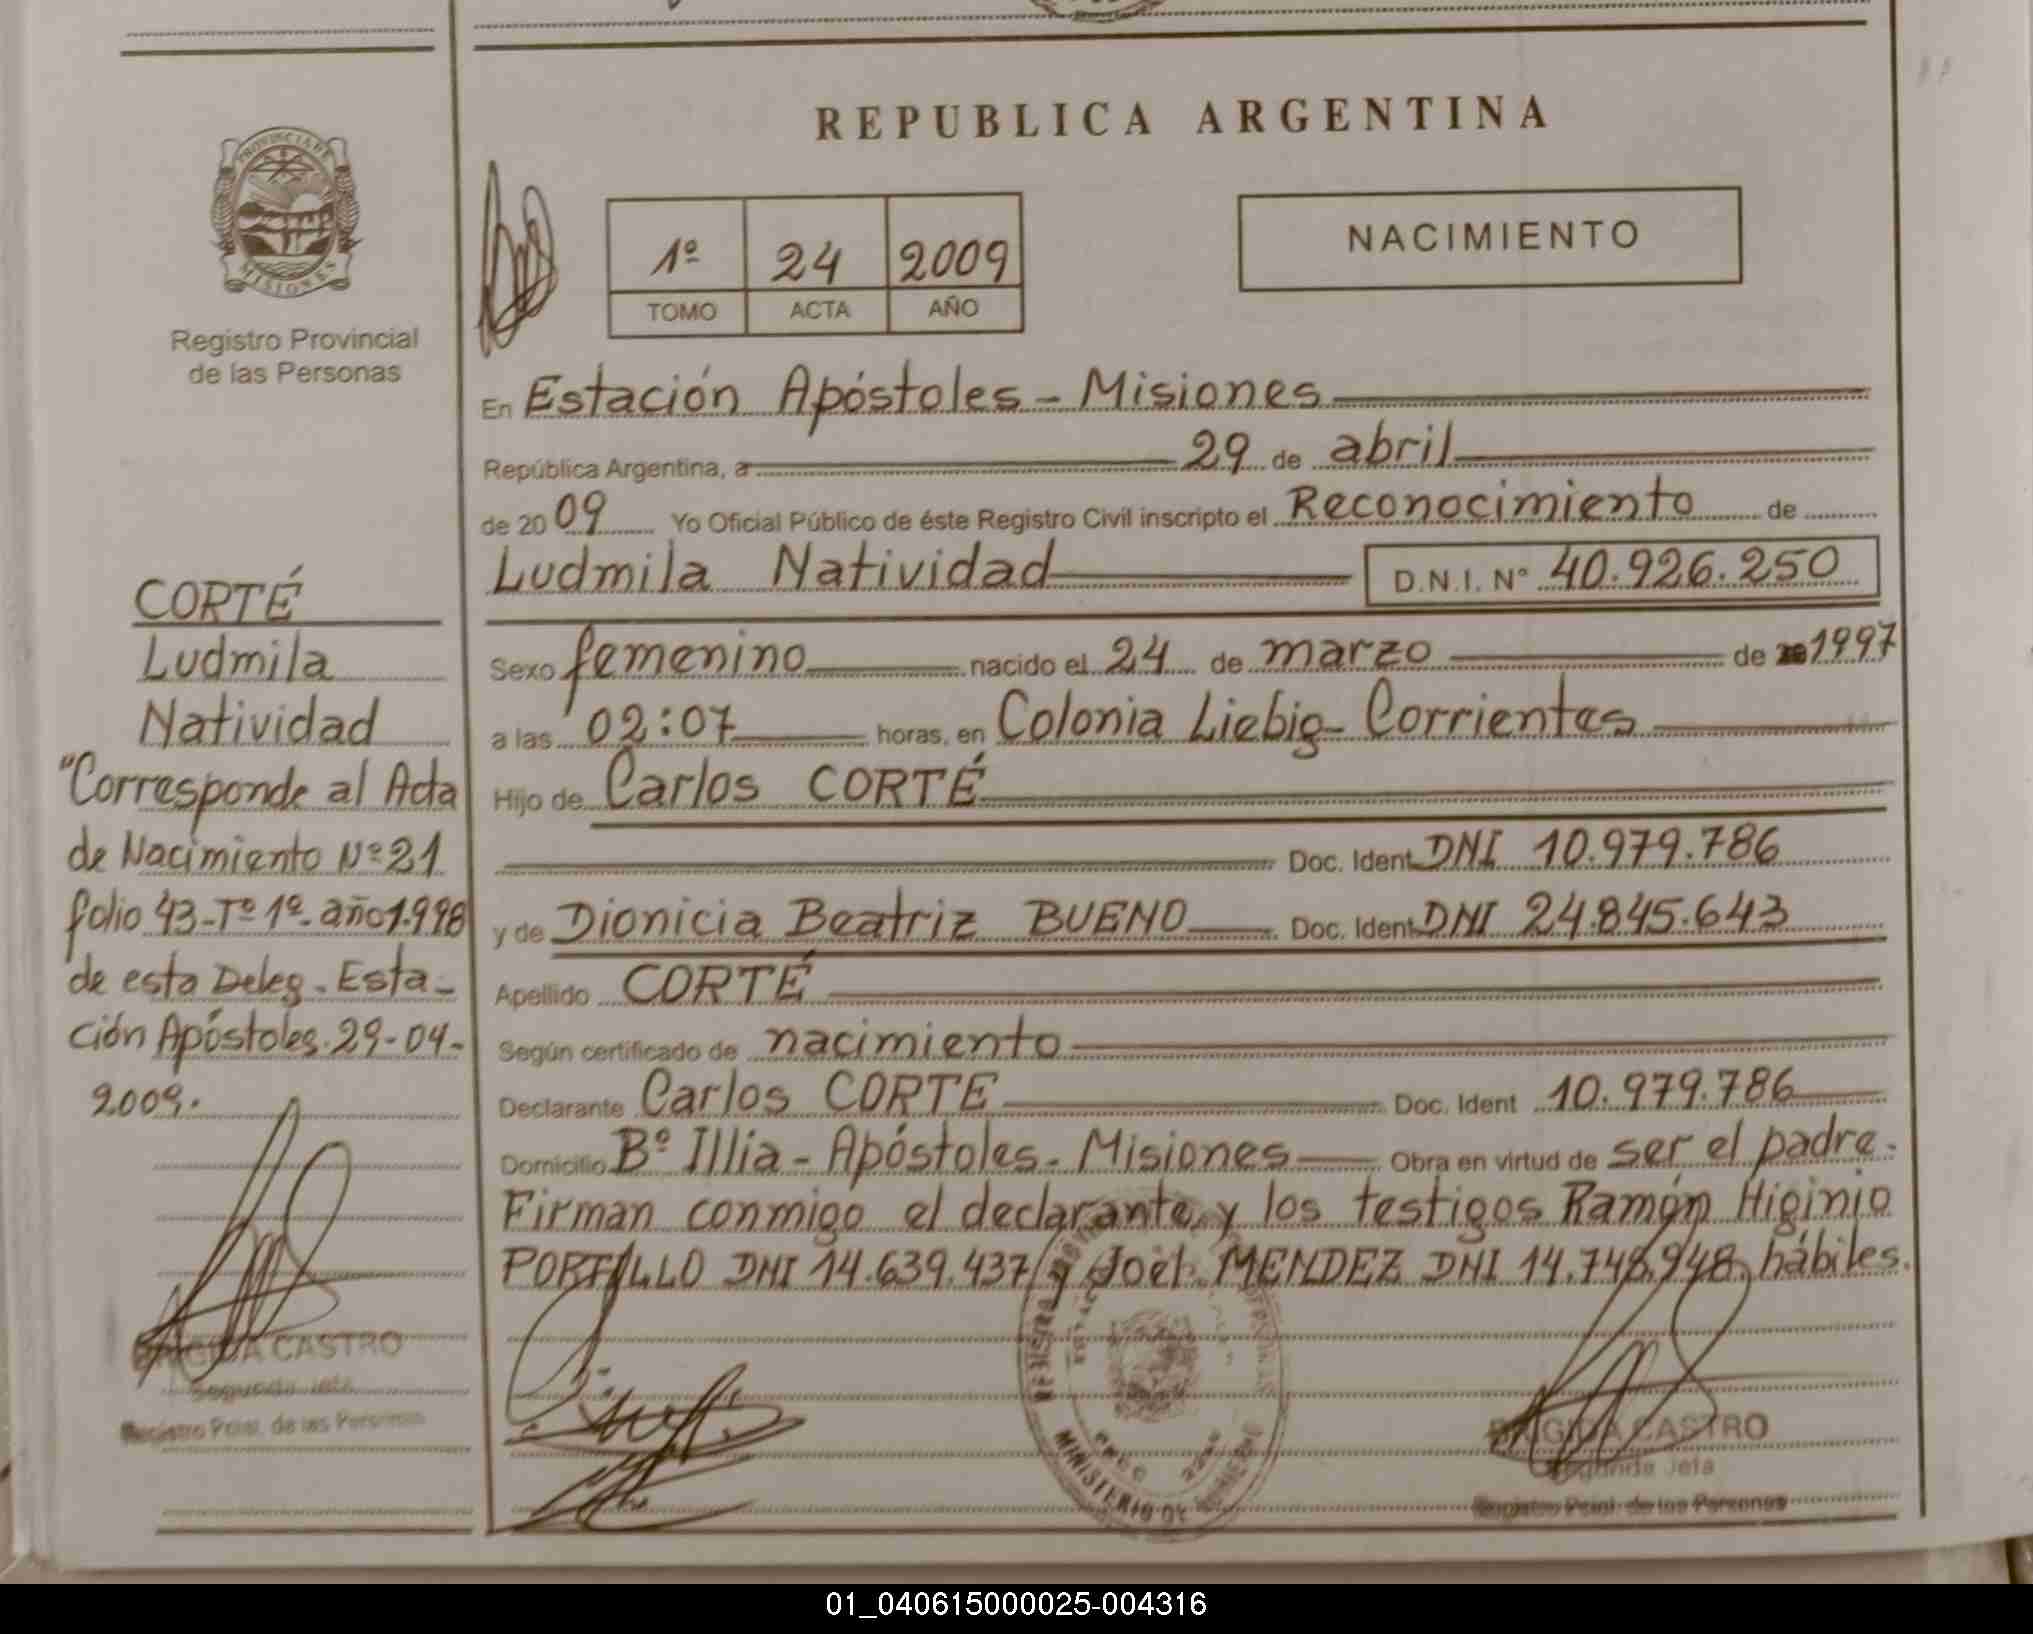 REPUBLICA ARGENTINA
PROVINCIA DE
MISIONES
Registro Provincial
de las Personas
1º 24 2009
TOMO ACTA AÑO
NACIMIENTO
En Estación Apóstoles - Misiones
República Argentina, a 29 de abril
de 2009 Yo Oficial Público de éste Registro Civil inscripto el Reconocimiento de
Ludmila Natividad D.N.I. Nº 40.926.250
Sexo femenino nacido el 24 de marzo de 1997
a las 02:07 horas, en Colonia Liebig - Corrientes
Hijo de Carlos CORTÉ
Doc. Ident DNI 10.979.786
y de Dionicia Beatriz BUENO Doc. Ident DNI 24.845.643
Apellido CORTÉ
Según certificado de nacimiento
Declarante Carlos CORTE Doc. Ident 10.979.786
Domicilio Bº Illia - Apóstoles - Misiones Obra en virtud de ser el padre.
Firman conmigo el declarante y los testigos Ramón Higinio
PORTILLO DNI 14.639.437 y Joel MENDEZ DNI 14.748.948, hábiles.
CORTÉ
Ludmila
Natividad
"Corresponde al Acta
de Nacimiento Nº 21
folio 43-Tº 1º-año 1.998
de esta Deleg. Esta-
ción Apóstoles. 29-04-
2009.
BRIGIDA CASTRO
Segunda Jefa
Registro Pcial. de las Personas
MINISTERIO DE
BRIGIDA CASTRO
Segunda Jefa
Registro Pcial. de las Personas
01_040615000025-004316